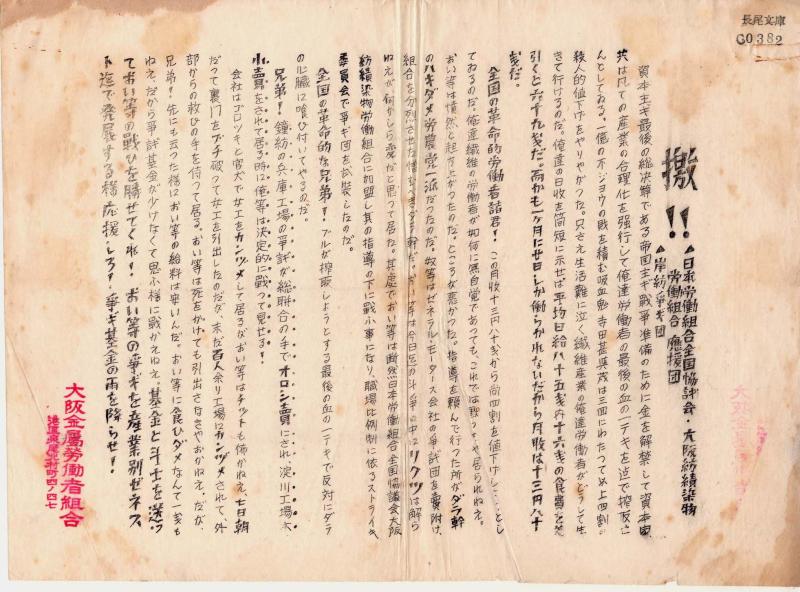 長尾文庫
G0382
檄!!
▲日本労働組合全国協議会・大阪紡績染物
労働組合 應援団
▲岸紡争ギ団
資本主ギ最後の総決算である帝国主ギ戦争準備のために金を解禁して資本家
共は凡ての産業の合理化を強行して俺達労働者の最後の血の一テキを迄で搾取
んとしてゐる。一億の不ジョウの戝を積む吸血鬼寺田甚與茂は三回にわたつて〆上四割
殺人的値下げをやりやがつた。只さえ生活難に泣く繊維産業の俺達労働者がどうして生
きて行けるのだ。俺達の日收を簡短に示せば平均日給八十五銭内十六銭の食費を差
引くと六十九銭だ。而かも一ヶ月に廿日しか働らかれないだから月收は十三円八十
銭だ。
全国の革命的労働者諸君!この月收十三円八十銭から尚四割を値下げし
てゐるのだ。俺達繊維の労働者が如何に無自覚であつても、これでは黙つちゃ居られねえ。
おい等は憤然と起ち上がつたのだ。ところが悪かつた。指導を頼んで行つた所がダラ幹
のハキダメ労農党一派だつたのだ。奴等はゼネラル・モータース会社の争議団を賣附け
組合を分列させた
リクツは解ら
ねえが、何かしら変だと思って居た。其處でおい等は断然日本労働組合全国協議会大阪
紡績染物労働組合に加盟し其の指導の下に戦ふ事になり、職場比例制に依るストライキ
委員会で争ギ団を武装したのだ。
全国の革命的な兄弟!ブルが搾取しようとする最後の血の一テキで反対にダラ
の心臓に喰ひ付いてやるのだ。
兄弟!鐘紡の兵庫工場の争議が総聯合の手でオロシ賣にされ、淀川工場が
小賣をされて居る所に俺等は決定的に戦って見せる!
会社はゴロツキと官犬で女工をカンヅメして居るがおい等はチットも怖かねえ、七日朝
だって裏門をブチ破って女工を引出したのだが、未だ百人余り工場にカンヅメされて、外
部からの救ひの手を待つて居る。おい等は死をかけても引出さなきやおかねえ。だが、
兄弟!先にも云つた様においら等の給料は安いんだ。おい等に食ひダメなんて一銭も
ねえ、だから争議基金が少けなくて思ふ様に戦かえねえ。基金と斗士を送つ
ておい等の戦ひを勝せてくれ!おい等の争ギを産業別ゼネス
ト迄で発展する様応援しろ!争ギ基金の雨を降らせ!
大阪金属労働者組合